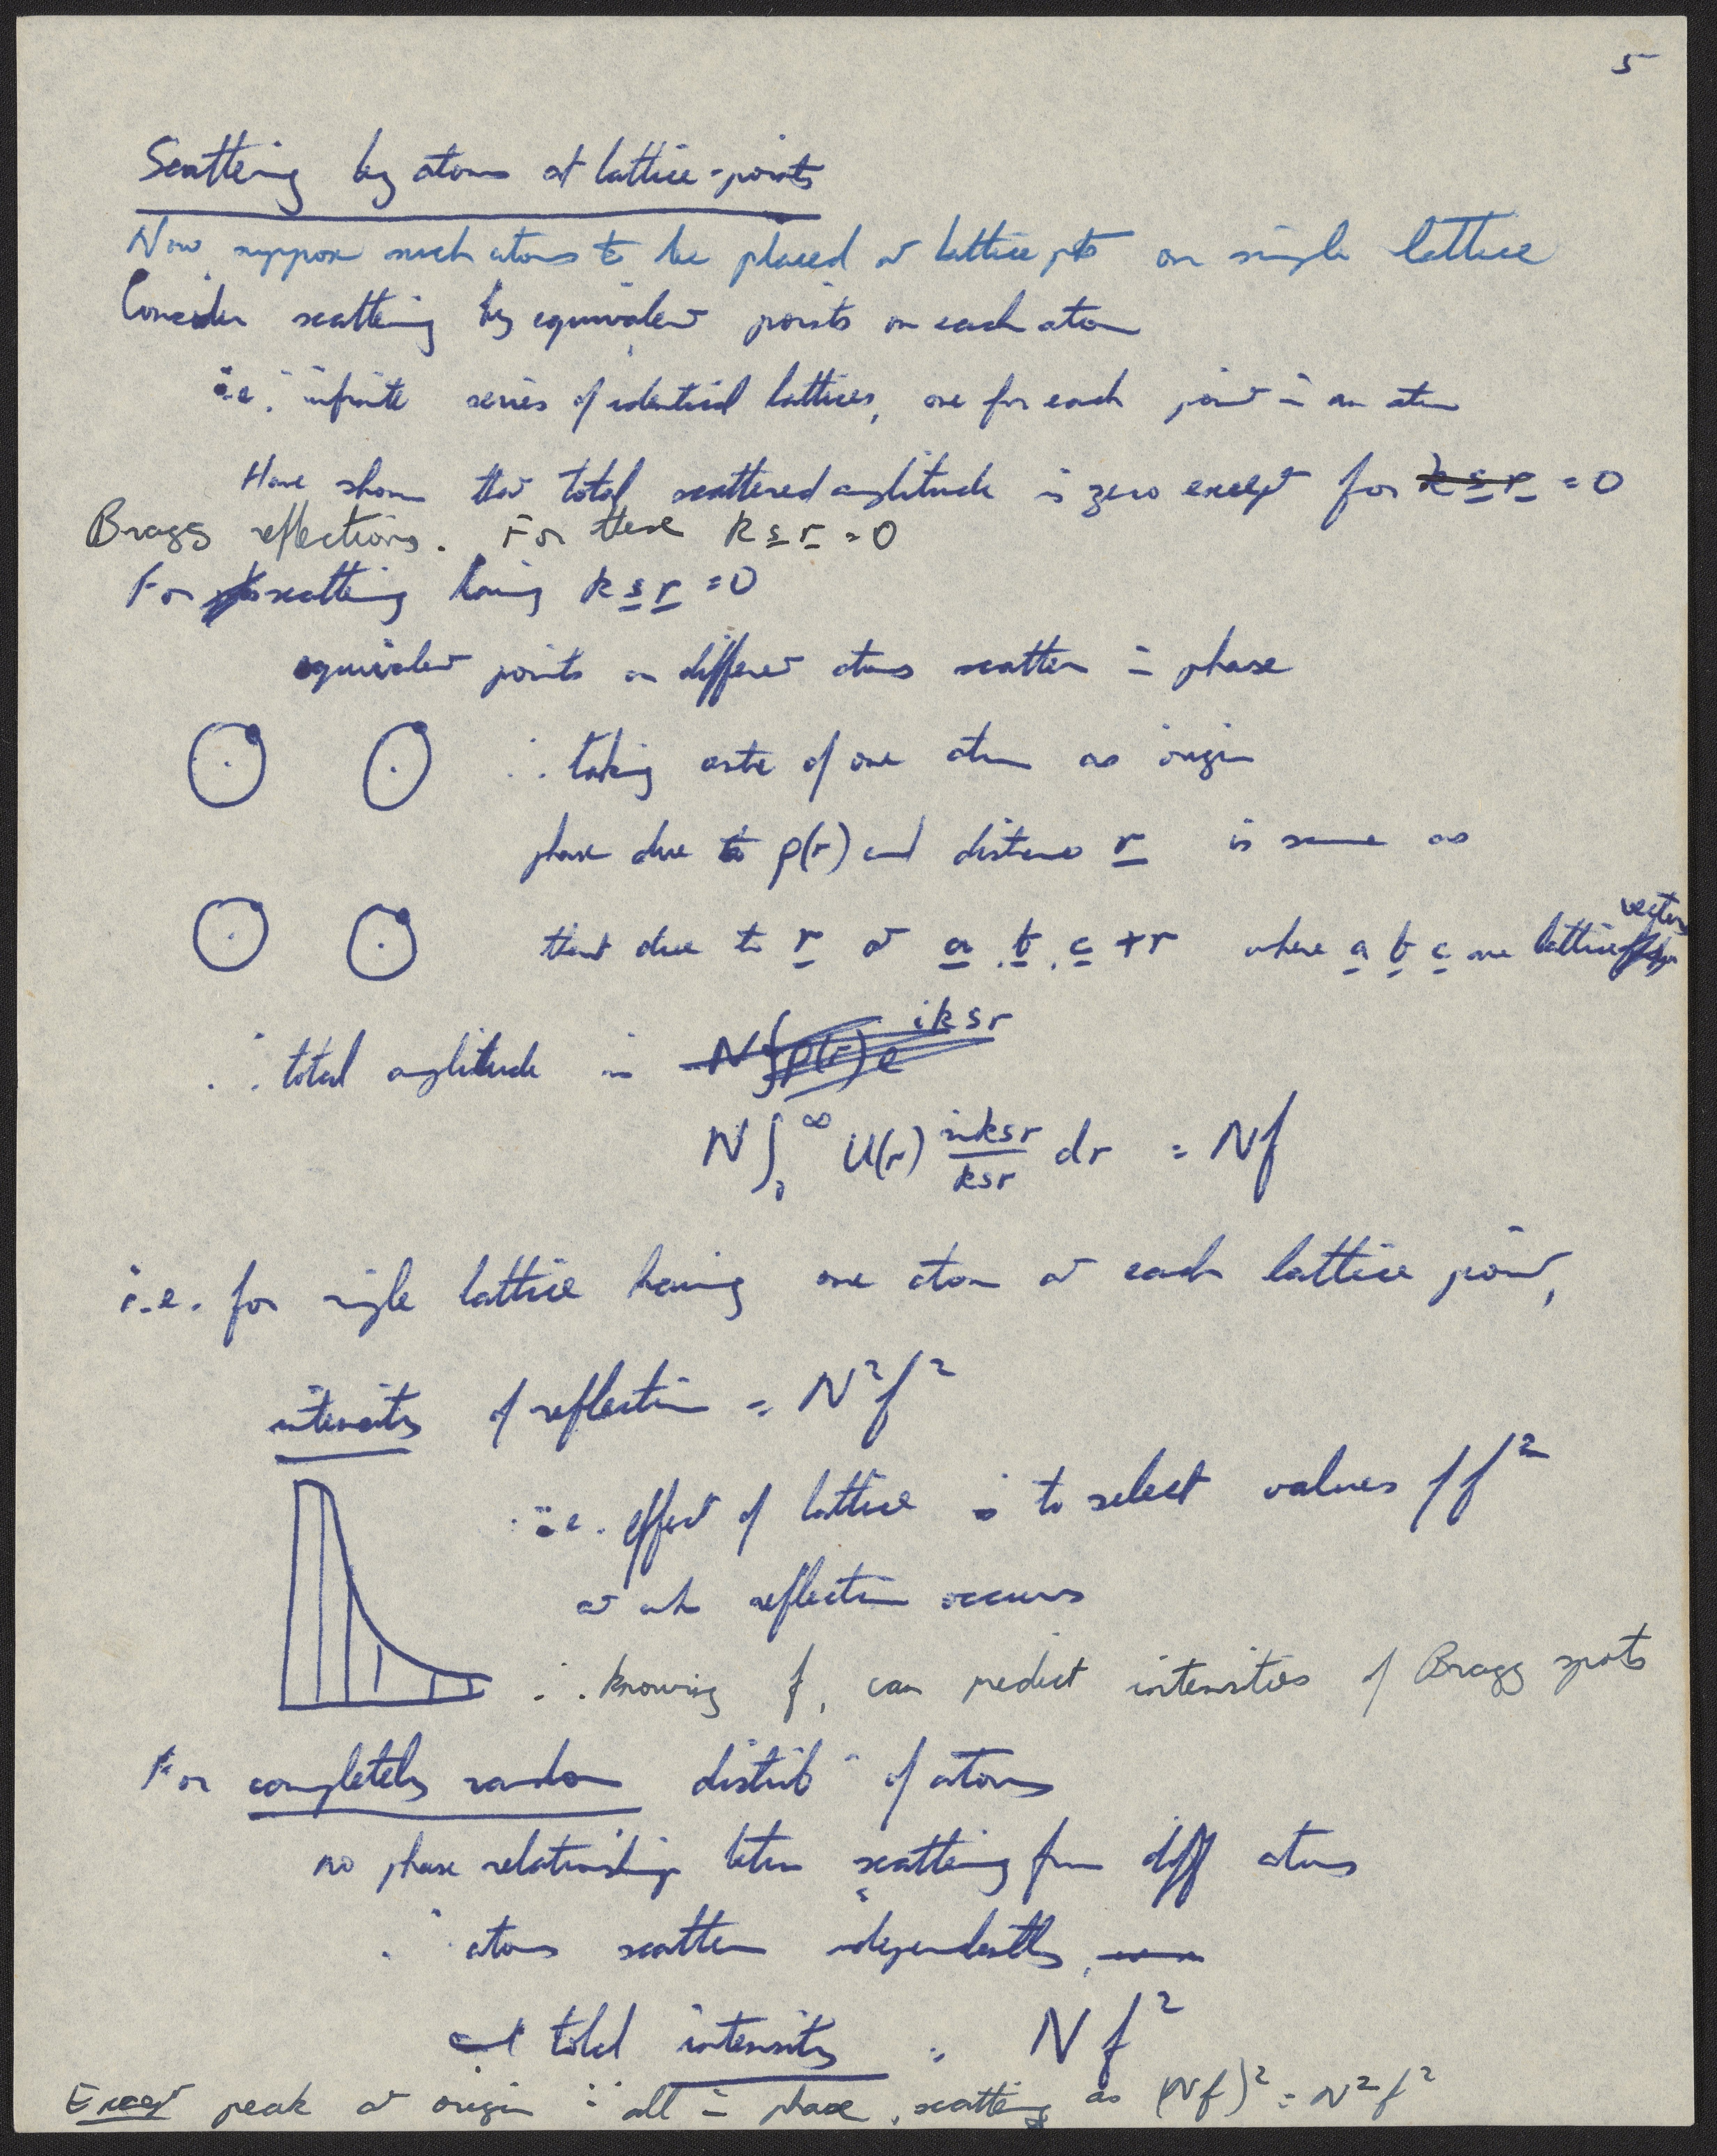 5
Scattering by atoms at lattice-points
Now suppose such atoms to be placed at lattice pts on single lattice
Consider scattering by equivalent points on each atom
i.e. infinite series of identical lattices, one for each point in an atom
Have shown that total scattered amplitude is zero except for k s r = 0
Bragg reflections. For these k s r = 0
For scattering having k s r = 0
equivalent points on different atoms scatter in phase
∴ taking centre of one atom as origin
phase due to ρ(r) and distance r is same as
that due to r at a, b, c + r where a b c are lattice vectors
∴ total amplitude is N∫ρ(r)e^iksr
N∫₀^∞ U(r) sin ksr/ksr dr = Nf
i.e. for single lattice having one atom at each lattice point,
intensity of reflection = N²f²
i.e. effect of lattice is to select values of f²
at wh reflection occurs
∴ knowing f, can predict intensities of Bragg spots
For completely random distribⁿ of atoms
no phase relationship betwn scattering from diff atoms
∴ atoms scatter independently,
and total intensity = Nf²
Except peak at origin ∵ all in phase, scattering as (Nf)² = N²f²